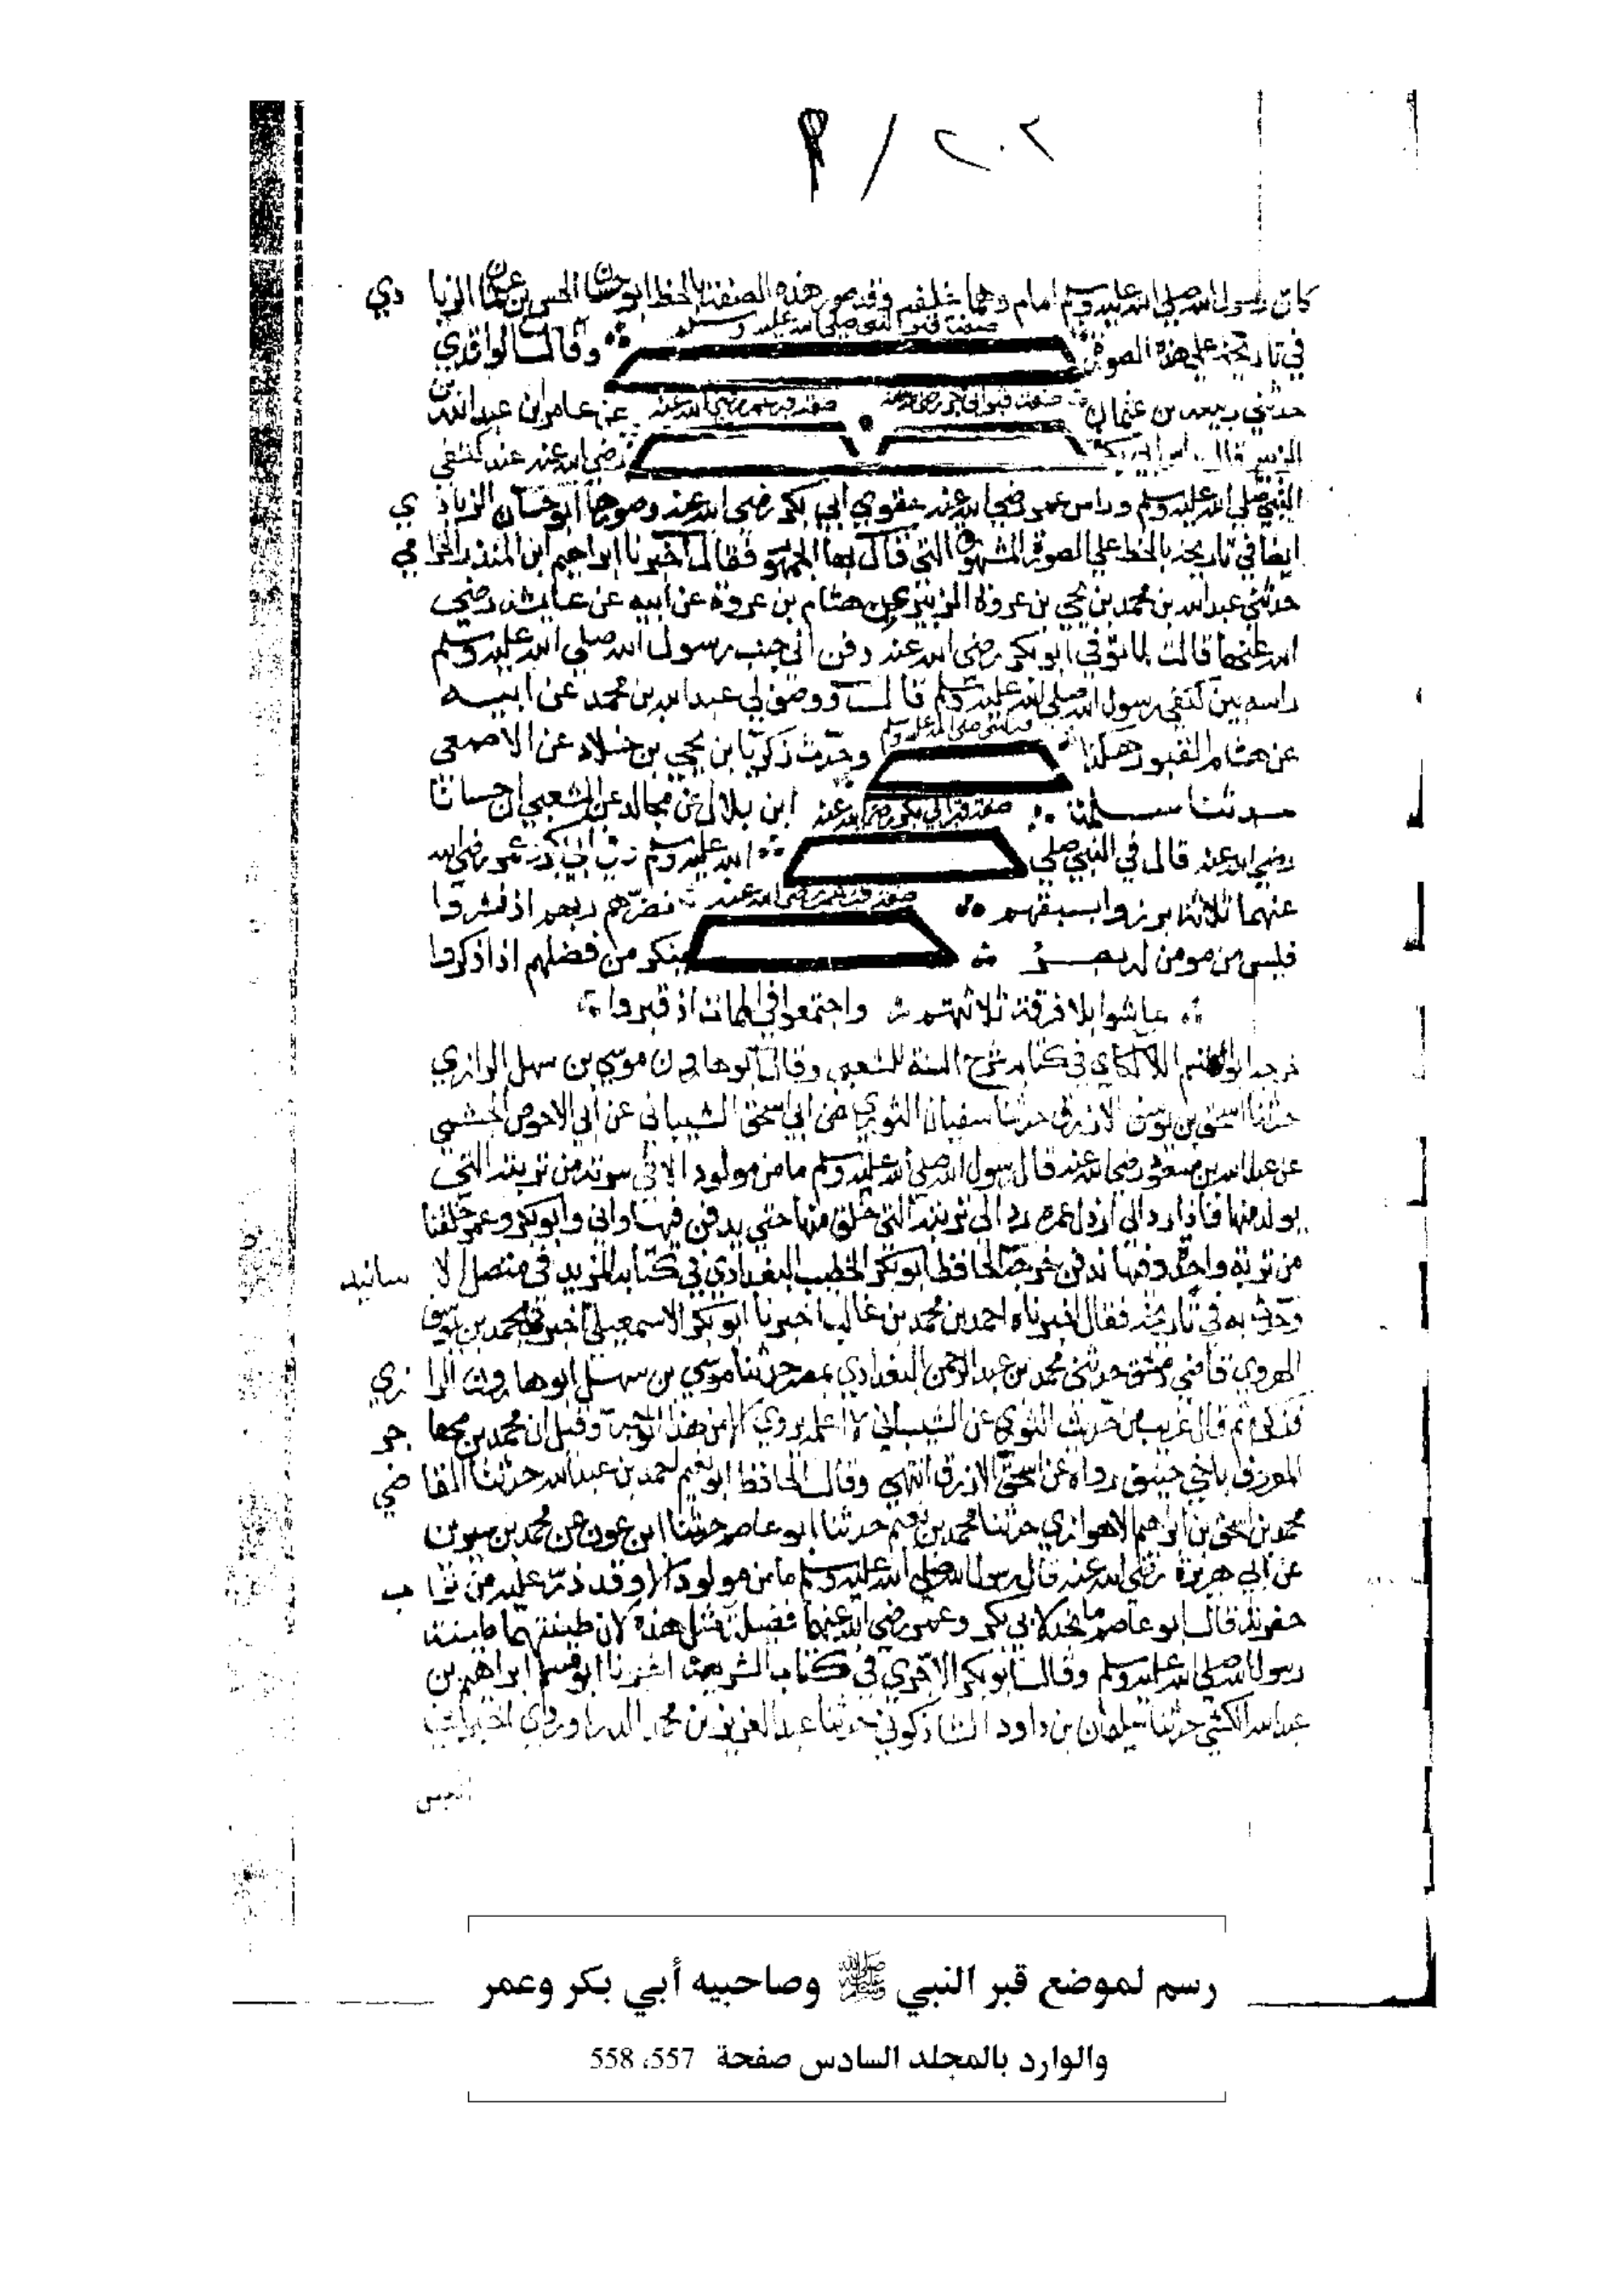 ٢٠٢ / ٩
كان رسول الله صلى الله عليه وسلم امام وهما خلفه وقد صور هذه الصفة بالخط ابو حسان الحسن بن عثمان الزيا دي
صفة قبر النبي صلى الله عليه وسلم
في تاريخه على هذه الصورة وقال الواقدي
صفة قبر ابي بكر رضي الله عنه صفة قبر عمر رضي الله عنه
حدثني ربيعه بن عثمان عن عامر ابن عبد الله بن
الزبير قال راس ابي بكر رضي الله عنه عند كتفي
النبي صلى الله عليه وسلم وراس عمر رضي الله عنه عند حقوي ابي بكر رضي الله عنه وصورها ابو حسان الزياد ي
ايضا في تاريخه بالخط على الصورة المشهورة التي قال بها الجمهور فقال اخبرنا ابراهيم ابن المنذر الحزا مي
حدثني عبد الله بن محمد بن يحيى بن عروة الزبيري عن هشام بن عروة عن ابيه عن عايشه رضي
الله عنها قالت لما توفي ابو بكر رضي الله عنه دفن الى جنب رسول الله صلى الله عليه وسلم
راسه بين كتفي رسول الله صلى الله عليه وسلم قالت ووصف لي عبد الله بن محمد عن ابيه
قبر النبي صلى الله عليه وسلم
عن هشام القبور هكذا وحدث زكريا بن يحيى بن خلاد عن الاصمعي
صفة قبر ابي بكر رضي الله عنه
حدثنا سلمة ابن بلال عن مجالد عن الشعبي ان حسانا
رضي الله عنه قال في النبي صلى الله عليه وسلم وفي ابي بكر وعمر رضي الله
صفة قبر عمر رضي الله عنه
عنهما ثلاثة برزوا بسبقهم نضرهم ربهم اذ نشروا
فليس من مومن له بصر ينكر من فضلهم اذا ذكروا
عاشوا بلا فرقة ثلاثتهم واجتمعوا في الممات اذ قبروا
خرجه ابو القسم اللالكاي في كتابه شرح السنة للشعبي وقال ابو هارون موسى بن سهل الرازي
حدثنا اسحق بن يوسف الازرق حدثنا سفيان الثوري عن ابي اسحق الشيباني عن ابي الاحوص الجشمي
عن عبد الله بن مسعود رضي الله عنه قال رسول الله صلى الله عليه وسلم ما من مولود الا في سرته من تربته التي
يولد منها فاذا رد الى ارذل عمره رد الى تربته التي خلق منها حتى يدفن فيها واني وابو بكر وعمر خلقنا
من تربة واحدة وفيها ندفن خرجه الحافظ ابو بكر الخطيب البغدادي في كتابه المزيد في متصل الا سانيد
وحدث به في تاريخه فقال اخبرناه احمد بن محمد بن غالب اخبرنا ابو بكر الاسمعيلي اخبرني محمد بن يوسف
الهروي قاضي دمشق حدثني محمد بن عبد الرحمن البغدادي بمصر حدثنا موسى بن سهل ابو هارون الرا زي
فذكره ثم قال غريب من حديث الثوري عن الشيباني لا اعلم يروي الا من هذا الوجه وقيل ان محمد بن مهاجر
المعروف باخي حنيف رواه عن اسحق الازرق انتهى وقال الحافظ ابو نعيم احمد بن عبد الله حدثنا القا ضي
محمد بن اسحق بن ابراهيم الاهوازي حدثنا محمد بن نعيم حدثنا ابو عاصم حدثنا ابن عون عن محمد بن سيرين
عن ابي هريرة رضي الله عنه قال رسول الله صلى الله عليه وسلم ما من مولود الا وقد ذر عليه من ترا ب
حفرته قال ابو عاصم ما نجد لابي بكر وعمر رضي الله عنهما فضيلة مثل هذه لان طينتهما طينة
رسول الله صلى الله عليه وسلم وقال ابو بكر الاجري في كتاب الشريعة اخبرنا ابو مسلم ابراهيم بن
عبد الله الكشي حدثنا سليمان بن داود الشاذكوني حدثنا عبد العزيز بن محمد الدراوردي اخبرني
انيس
رسم لموضع قبر النبي ﷺ وصاحبيه أبي بكر وعمر
والوارد بالمجلد السادس صفحة 557، 558